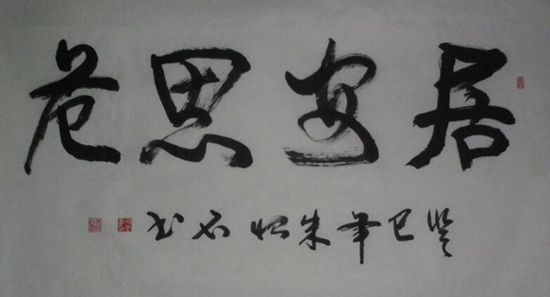 居安思危
癸巳年朱恒石书